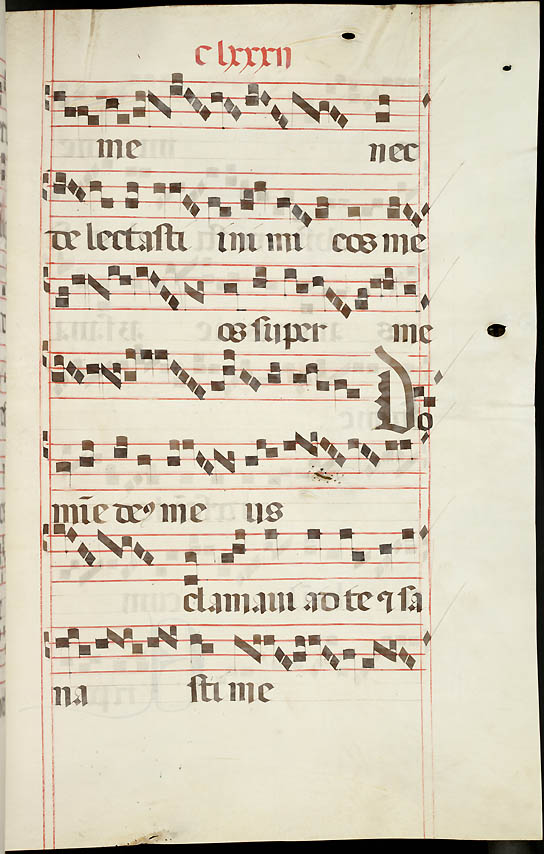 clxxxii
me nec
delectasti inimicos me
os super me
Do
mīe deꝯ me us
clamaui ad te ⁊ sa
na sti me